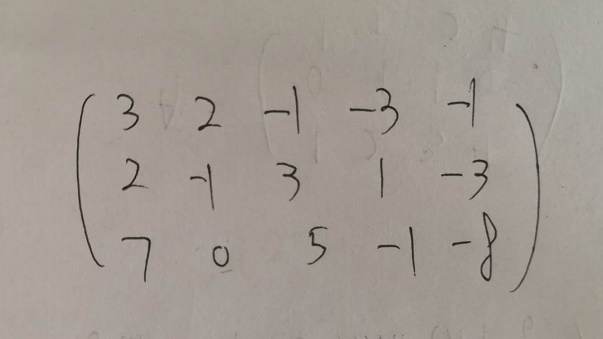 3 2 -1 -3 -1
2 -1 3 1 -3
7 0 5 -1 -8